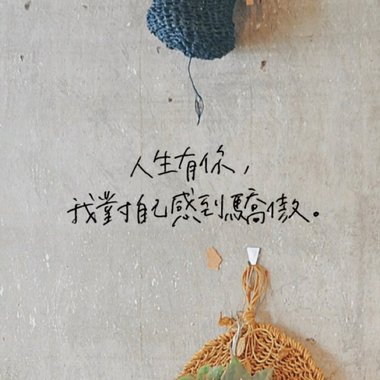 人生有你，
我對自己感到驕傲。